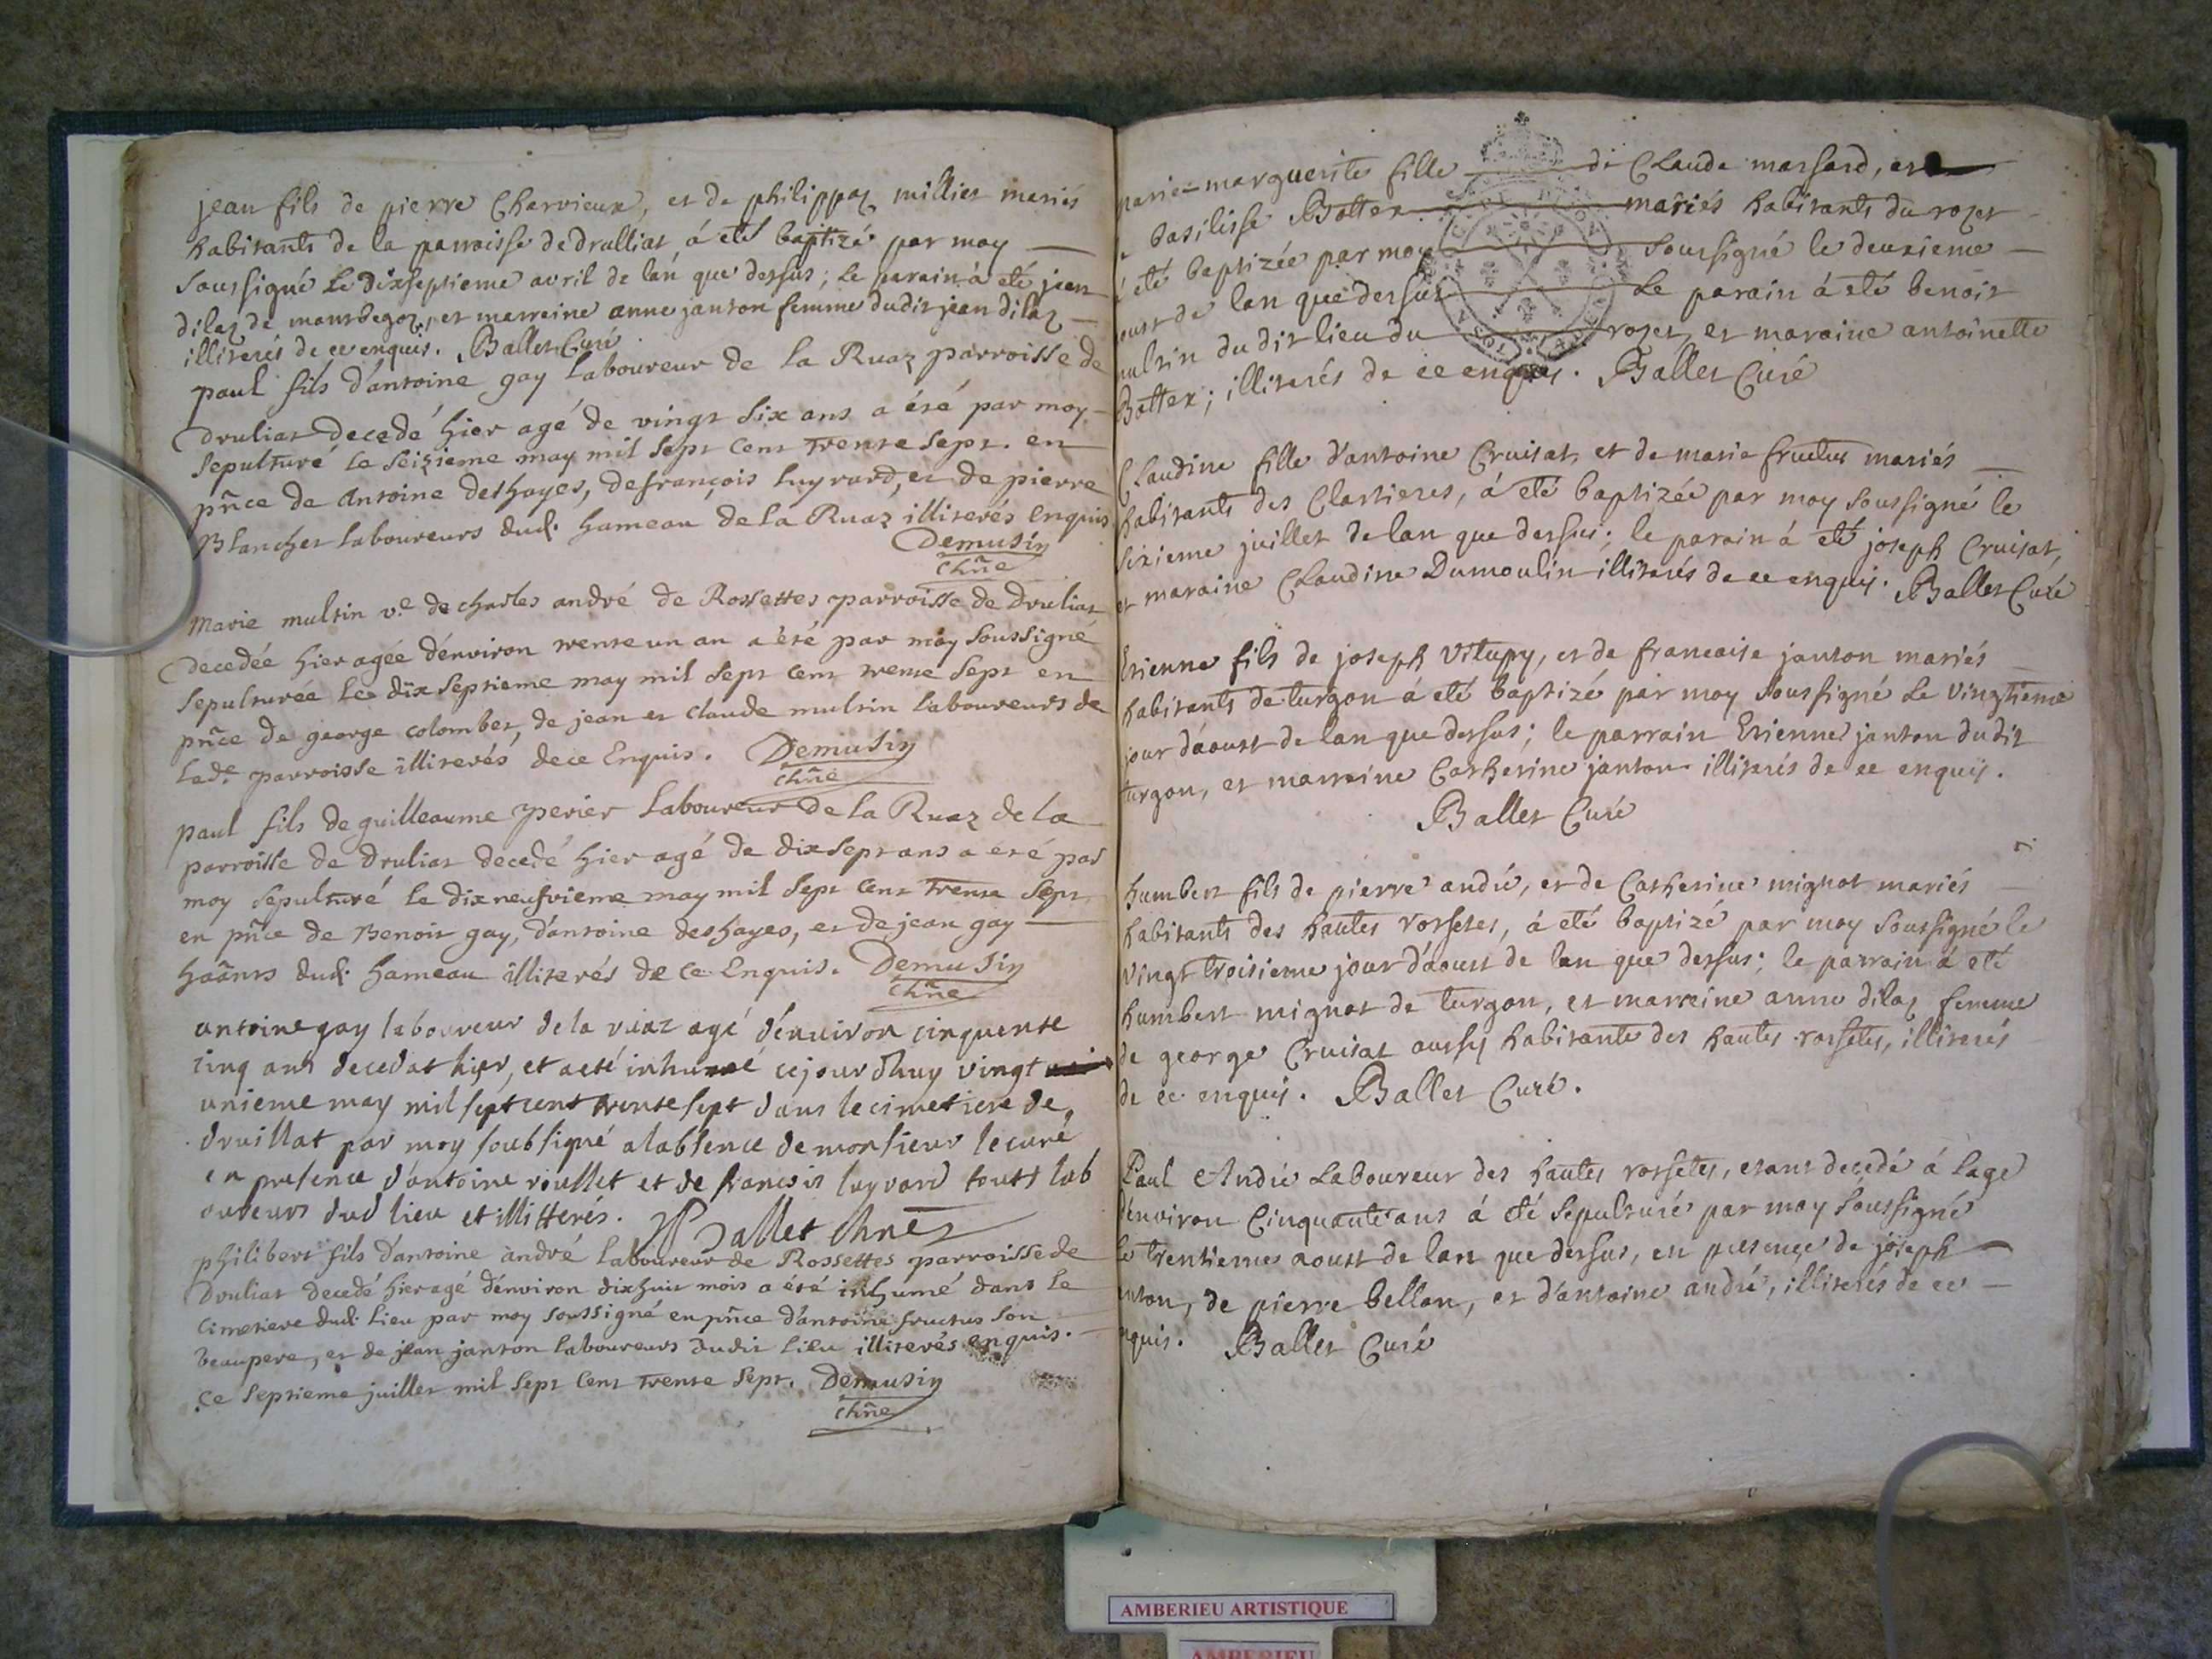 jean fils de pierre Charvieux, et de philippaz millier mariés
habitants de la parroisse de drulliat á eté baptizé par moy
soussigné le dixseptieme avril de lan que dessus; le parain á eté jean
dilaz de montbegoz, et marreine anne janton femme dudit jean dilaz
illiterés de ce enquis. Ballet Curé
paul fils d'antoine gay laboureur de la Ruaz parroisse de
Druliat decedé hier agé de vingt six ans a été par moy
sepulturé le seizieme may mil sept cent trente sept. en
pñce de Antoine deshayes, de françois luyrard, et de pierre
Blanchet laboureurs dud. hameau de la Ruaz illiterés enquis
Demusin
chñe
Marie multin v.e de charles andré de Rossettes parroisse de Druliat
decedée hier agée d'environ trente un an a été par moy soussigné
sepulturée le dix septieme may mil sept cent trente sept en
pñce de george colombet, de jean et claude multin laboureurs de
lad.e parroisse illiterés de ce Enquis. Demusin
chñe
paul fils de guilleaume perier laboureur de la Ruaz de la
parroisse de druliat decedé hier agé de dix sept ans a eté par
moy sepulturé le dix neufvieme may mil sept cent trente sept
en pñce de Benoit gay, d'antoine deshayes, et de jean gay
haãnts dud. hameau illiterés de ce Enquis. Demusin
chñe
antoine gay laboureur de la ruaz agé d'environ cinquente
cinq ans decedat hier, et a eté inhumé cejourdhuy vingt
unieme may mil sept cent trente sept dans le cimetiere de
druillat par moy soubsigné a labsence de monsieur le curé
en presence d'antoine riollet et de francois luyrard touts lab
oureurs dud lieu et illitterés. Ballet chne
philibert fils d'antoine andré laboureur de Rossettes parroisse de
Druliat decedé hier agé d'environ dixhuit mois a été inhumé dans le
cimetiere dud. lieu par moy soussigné en pñce d'antoine fructus son
beaupere, et de jean janton laboureurs dudit lieu illiterés enquis.
ce septieme juillet mil sept cent trente sept. Demusin
chñe
marie-marguerite fille de Claude massard, et
basilisse Botter mariés habitants du rozet
á eté baptizée par moy soussigné le deuxieme
aoust de lan que dessus Le parain á eté benoit
multin du dit lieu du rozet, et maraine antoinette
Botter; illiterés de ce enquis. Ballet Curé
Claudine fille d'antoine Cruisat, et de marie fructus mariés
habitants des Clartieres, á eté baptizée par moy soussigné le
sixieme juillet de lan que dessus; le parain á eté joseph Cruisat,
et maraine Claudine Dumoulin illiterés de ce enquis. Ballet Curé
Etienne fils de joseph Vitupy, et de francaise janton mariés
habitants de turgon á eté baptizé par moy soussigné le vingtieme
jour d'aoust de lan que dessus; le parrain Etienne janton du dit
turgon, et marreine Catherine janton illiterés de ce enquis.
Ballet Curé
humbert fils de pierre andré, et de Catherine mignot mariés
habitants des hautes rossetes, á eté baptizé par moy soussigné le
vingt troisieme jour d'aoust de lan que dessus; le parrain á eté
humbert mignot de turgon, et marreine anne dilaz femme
de george Cruisat aussy habitante des hautes rossetes, illiterés
de ce enquis. Ballet Curé.
Paul André Laboureur des hautes rossetes, etant decedé á lage
d'environ Cinquante ans á eté sepulturé par moy soussigné
le trentieme aoust de lan que dessus, en presence de joseph
janton, de pierre bellon, et d'antoine andré, illiterés de ce
enquis. Ballet Curé
AMBERIEU ARTISTIQUE
AMBERIEU